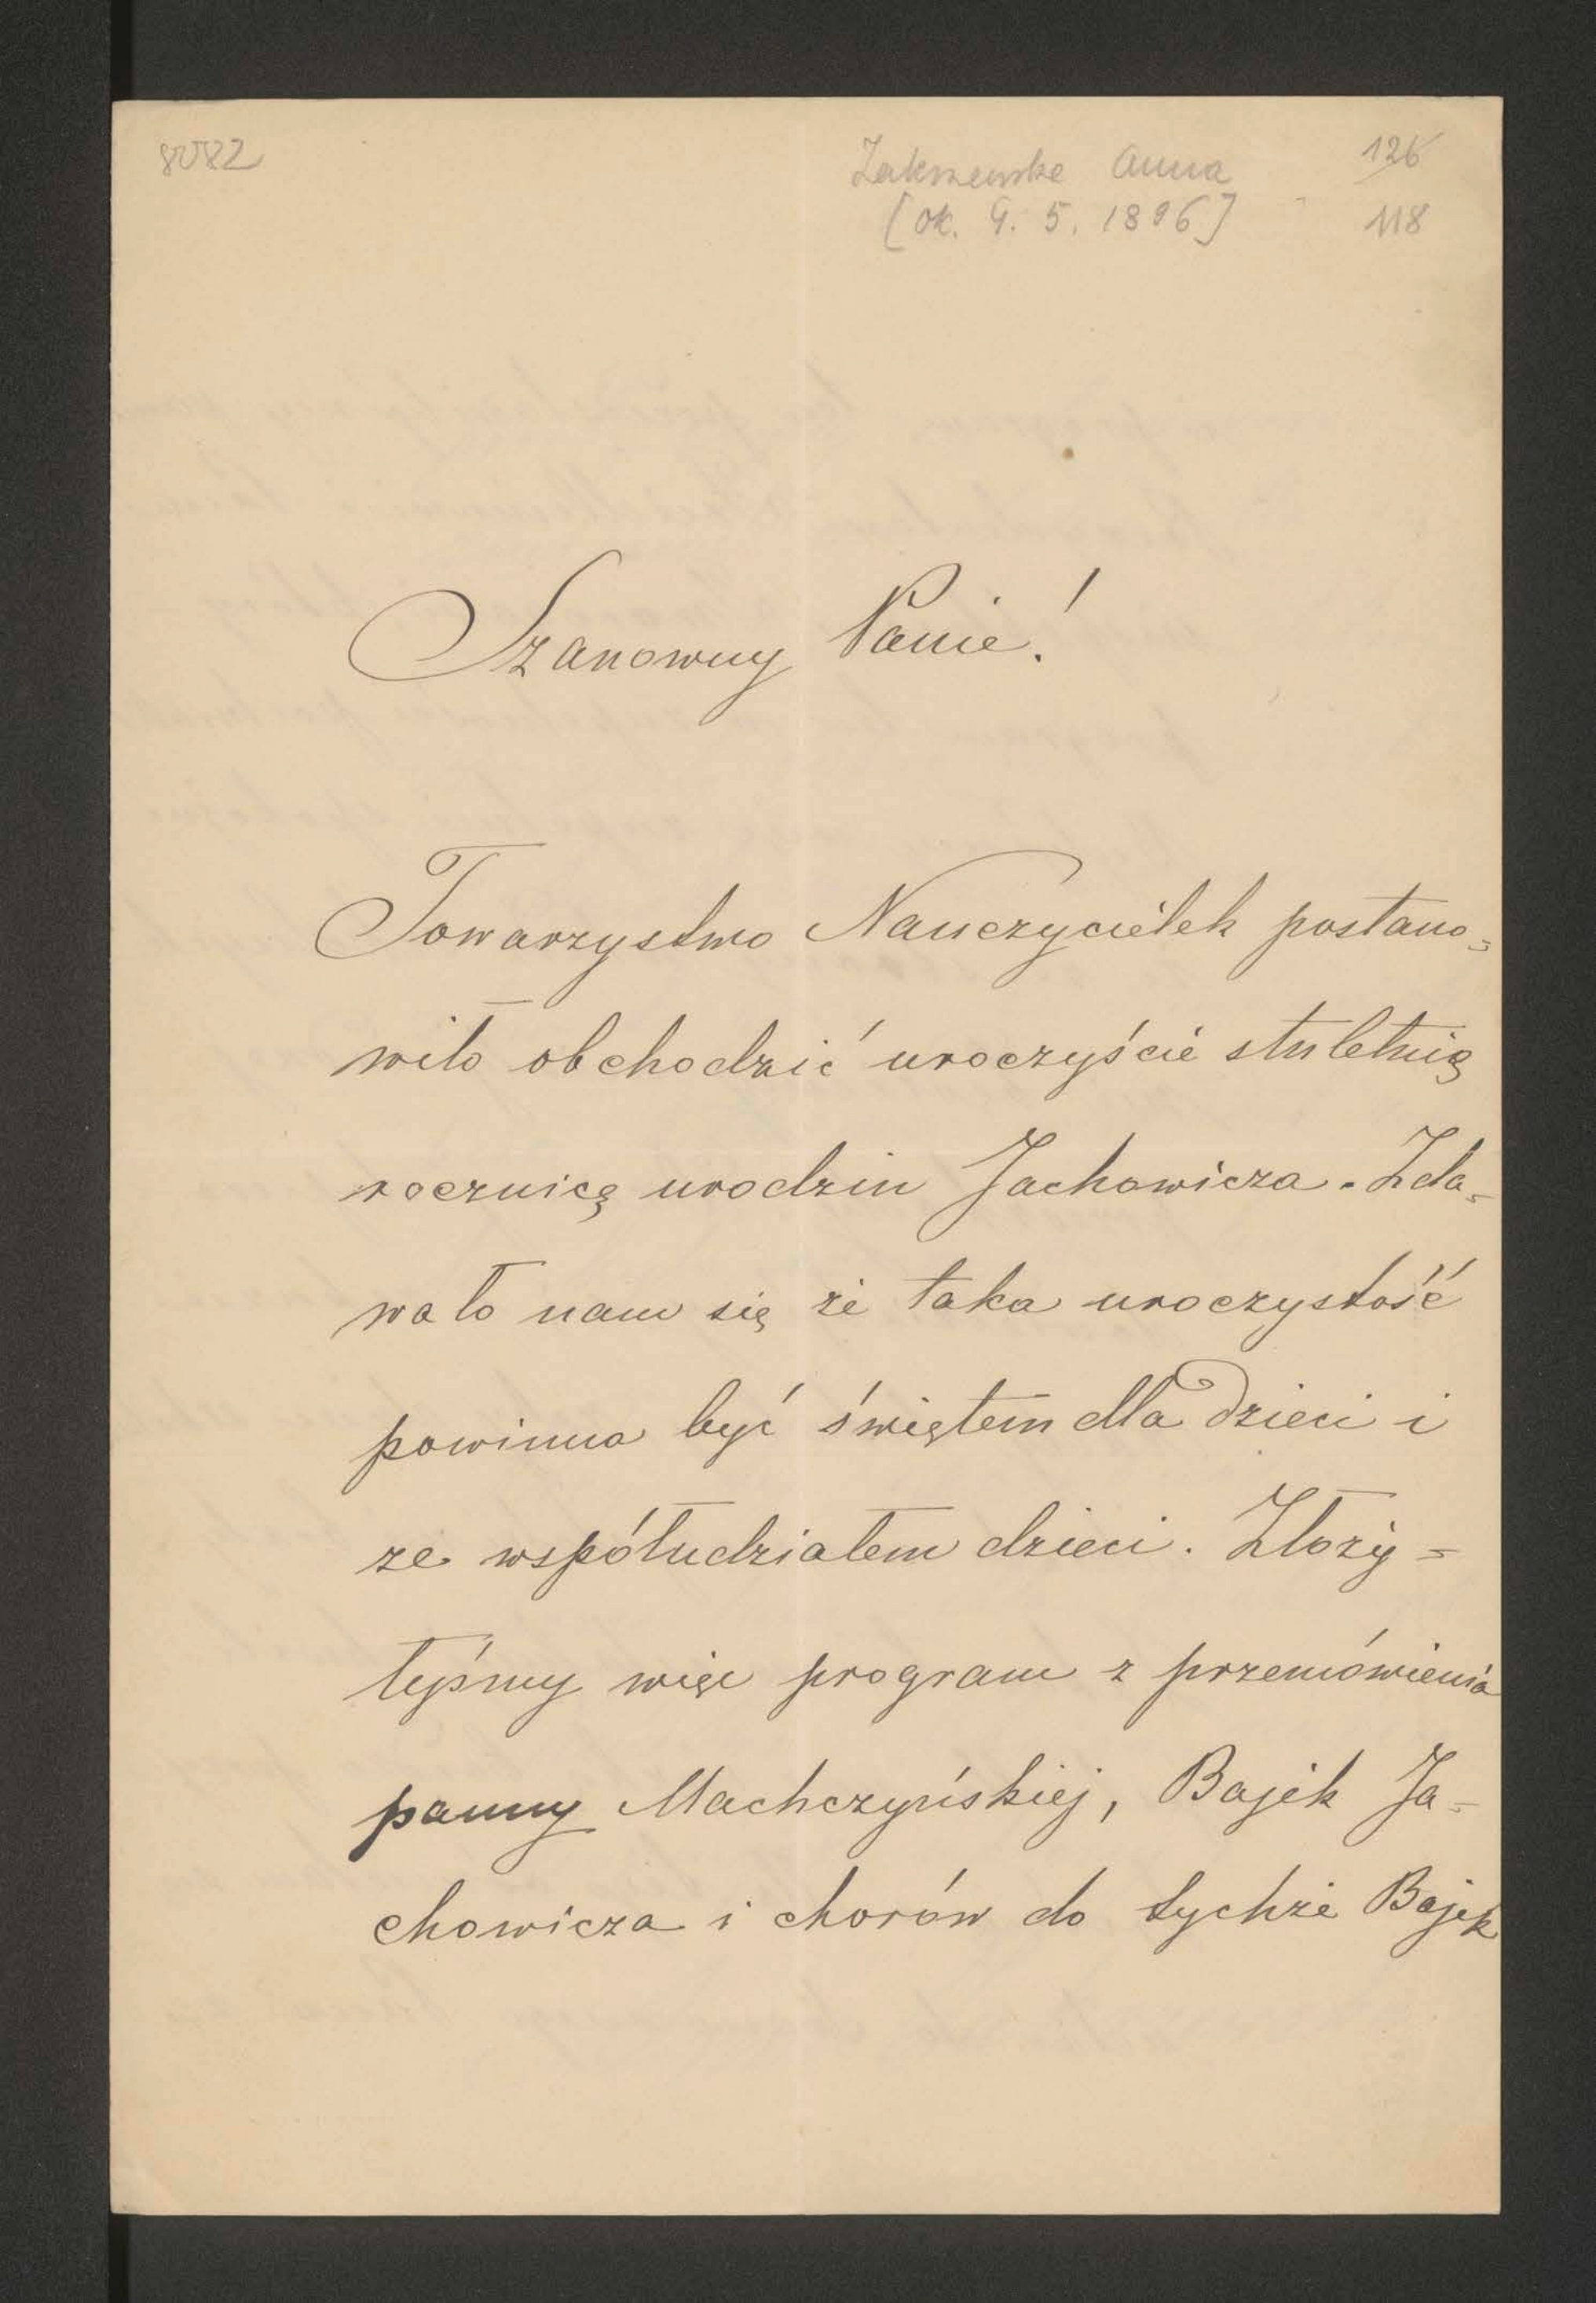 8082
Zakrzewska Anna 126
[ok. 9. 5. 1896] 118
Szanowny Panie!
Towarzystwo Nauczycielek postano=
wiło obchodzić uroczyście stuletnią
rocznicę urodzin Jachowicza. Zda-
wało nam się że taka uroczystość
powinna być świętem dla dzieci i
ze współudziałem dzieci. Złoży=
łyśmy więc program z przemówienia
panny Machczyńskiej, Bajek Ja-
chowicza i chorów do tychże Bajek